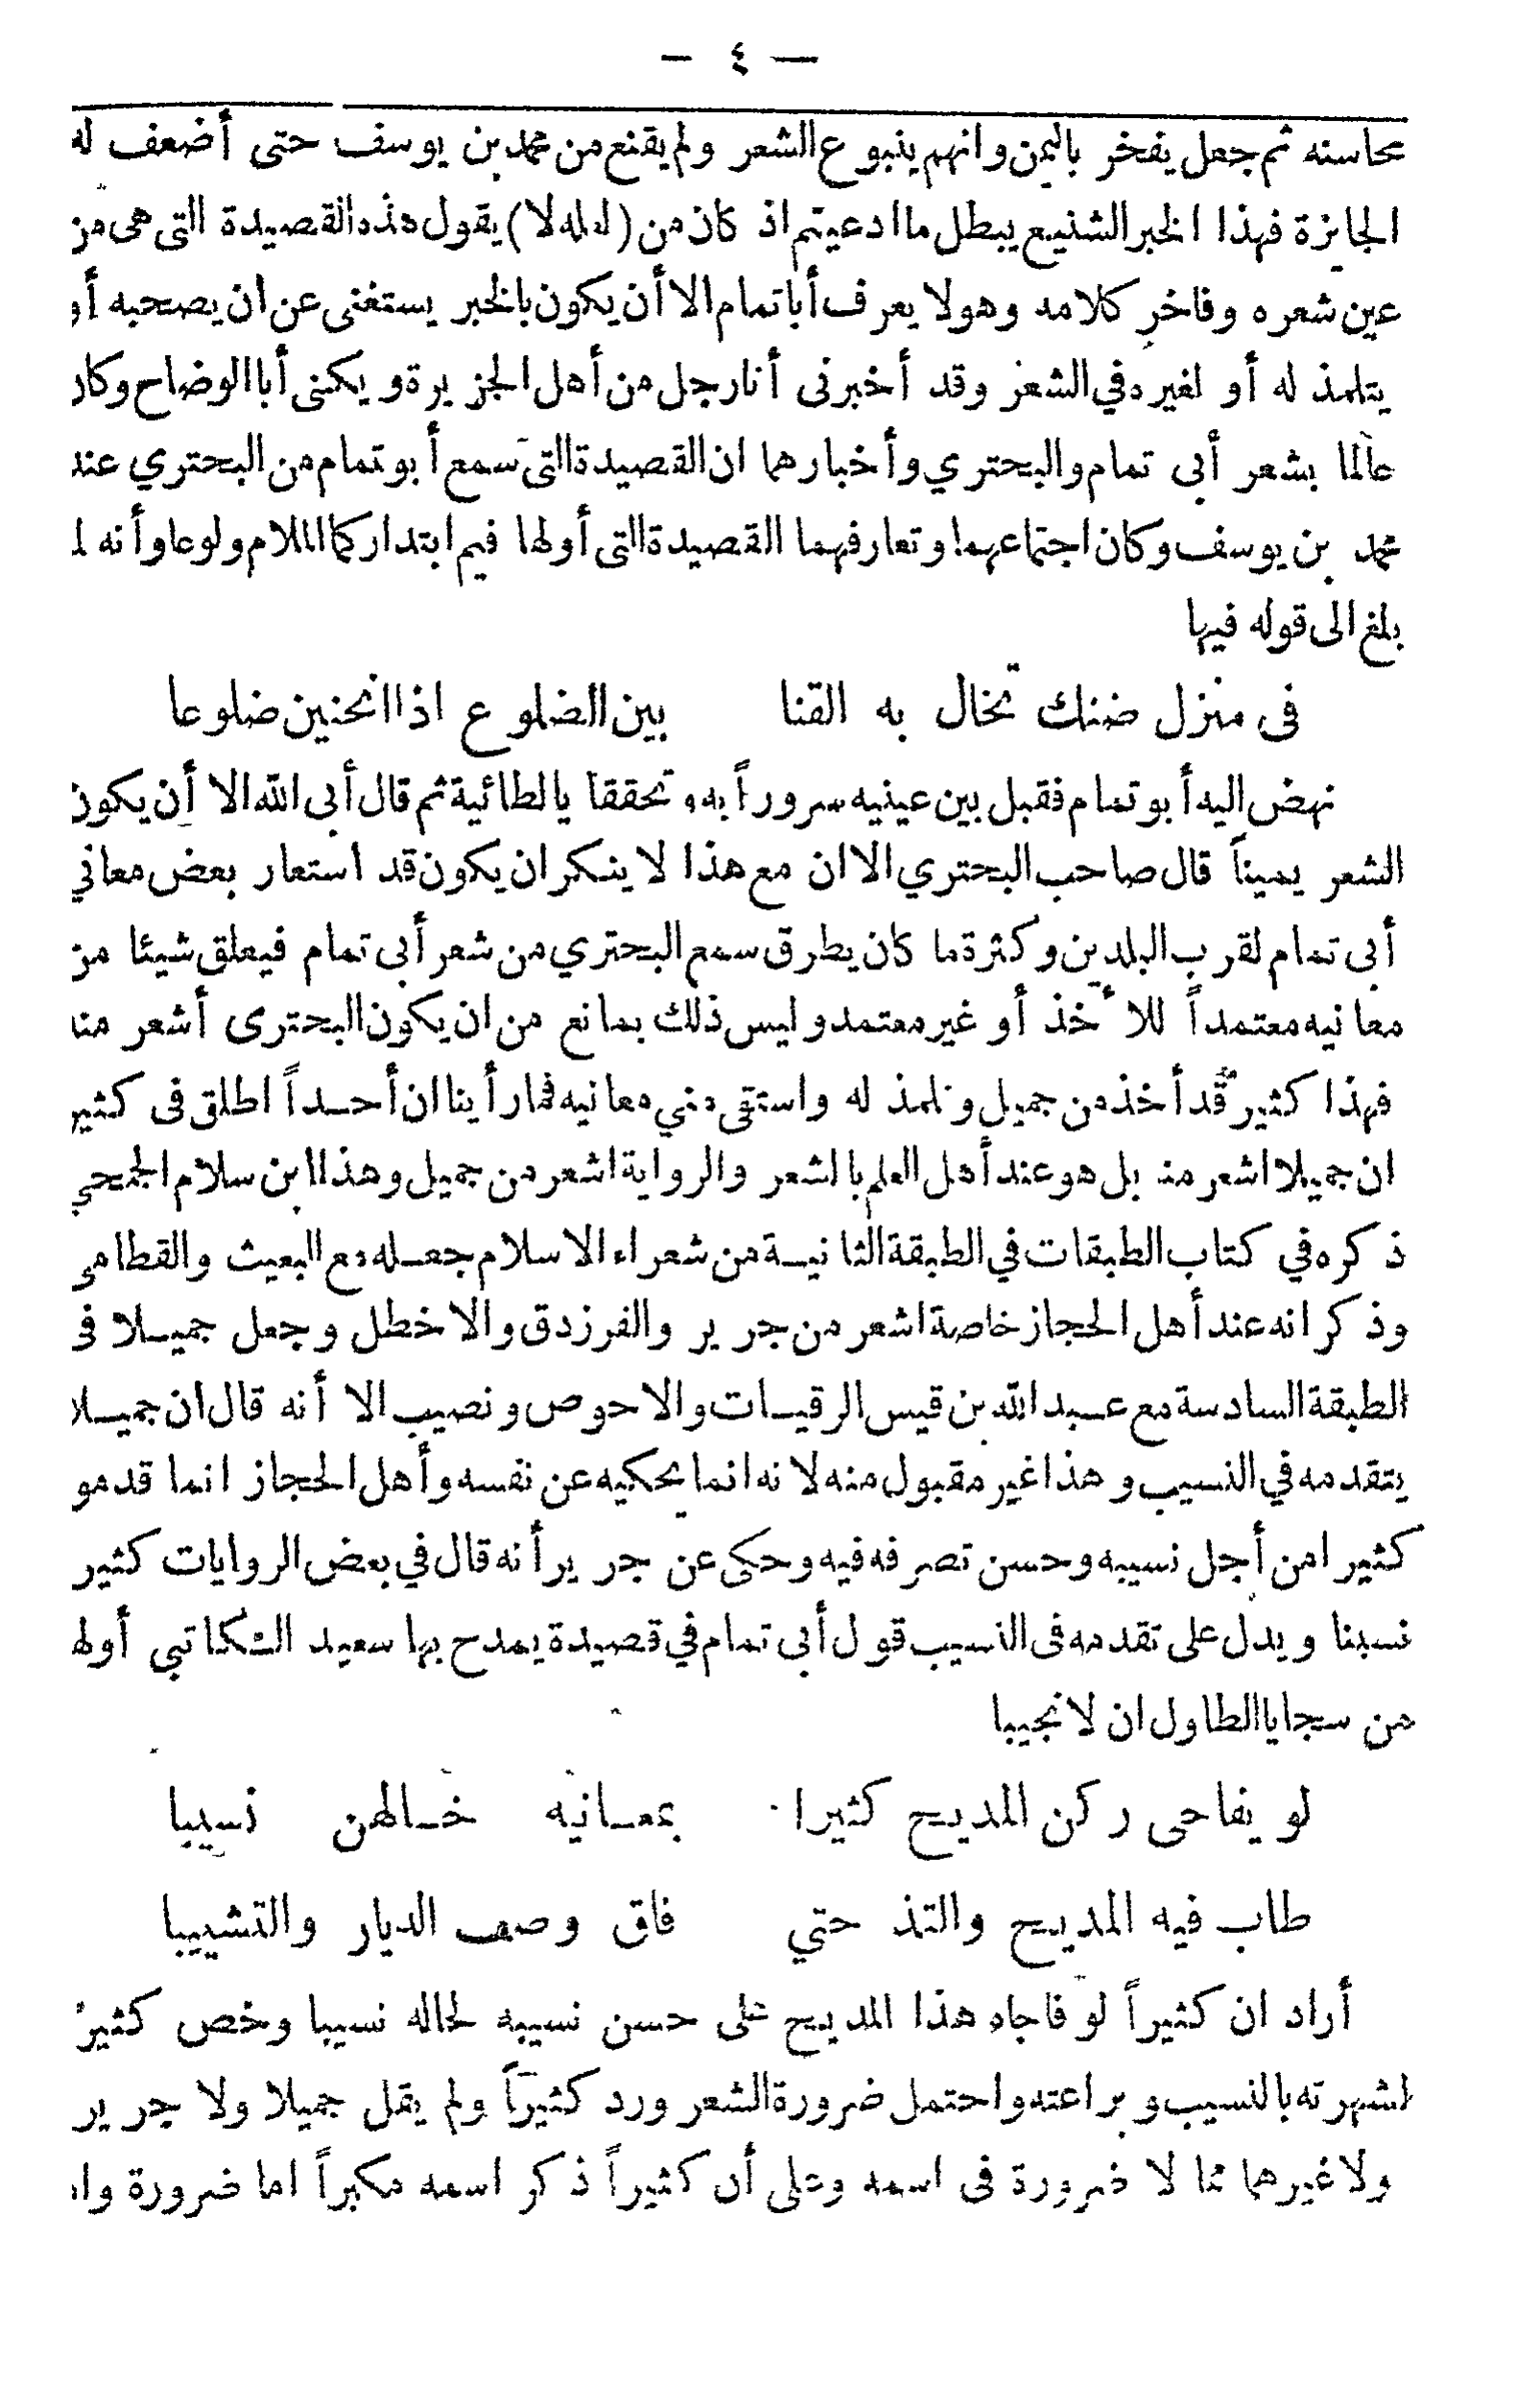 — ٤ —
محاسنه ثم جعل يفخر باليمن وانهم ينبوع الشعر ولم يقنع من محمد بن يوسف حتى أضعف له
الجائزة فهذا الخبر الشنيع يبطل ما ادعيتم اذ كان من ( لعله لا ) يقول هذه القصيدة التى هى من
عين شعره وفاخر كلامه وهو لا يعرف أبا تمام الا أن يكون بالخبر يستغنى عن ان يصحبه أو
يتلمذ له أو لغيره في الشعر وقد أخبرنى أنا رجل من أهل الجزيرة ويكنى أبا الوضاح وكان
عالما بشعر أبى تمام والبحتري وأخبارهما ان القصيدة التى سمع أبو تمام من البحتري عند
محمد بن يوسف وكان اجتماعهما وتعارفهما القصيدة التى أولها فيم ابتدار كما الملام ولوعا وأنه لما
بلغ الى قوله فيها
فى منزل ضنك تخال به القنا بين الضلوع اذا انحنين ضلوعا
نهض اليه أبو تمام فقبل بين عينيه سروراً به وتحققا بالطائية ثم قال أبى الله الا أن يكون
الشعر يميناً قال صاحب البحتري الا ان مع هذا لا ينكر ان يكون قد استعار بعض معاني
أبى تمام لقرب البلدين وكثرة ما كان يطرق سمع البحتري من شعر أبى تمام فيعلق شيئا من
معانيه معتمداً للأخذ أو غير معتمد وليس ذلك بمانع من ان يكون البحترى أشعر منه
فهذا كثير قد أخذ من جميل وتلمذ له واستقى من معانيه فما رأينا ان أحداً اطلق فى كثير
ان جميلا اشعر منه بل هو عند أهل العلم بالشعر والرواية اشعر من جميل وهذا ابن سلام الجمحي
ذكره في كتاب الطبقات في الطبقة الثانية من شعراء الاسلام جعله مع البعيث والقطامى
وذكر انه عند أهل الحجاز خاصة اشعر من جرير والفرزدق والاخطل وجعل جميلا فى
الطبقة السادسة مع عبد الله بن قيس الرقيات والاحوص ونصيب الا أنه قال ان جميلا
يتقدمه في النسيب وهذا غير مقبول منه لانه انما يحكيه عن نفسه وأهل الحجاز انما قدموا
كثيرا من أجل نسيبه وحسن تصرفه فيه وحكى عن جرير أنه قال في بعض الروايات كثير
نسبنا ويدل على تقدمه فى النسيب قول أبى تمام في قصيدة يمدح بها سعيد الكاتبي أولها
من سجايا الطاول ان لا تجيبا
لو يفاجى ركن المديح كثيرا بمعانيه خالهن نسيبا
طاب فيه المديح والتذ حتي فاق وصف الديار والتشبيبا
أراد ان كثيراً لو فاجاه هذا المديح على حسن نسيبه لخاله نسيبا وخص كثيراً
لشهرته بالنسيب وبراعته واحتمل ضرورة الشعر ورد كثيراً ولم يقل جميلا ولا جرير
ولا غيرهما مما لا ضرورة فى اسمه وعلى أن كثيراً ذكر اسمه مكبراً اما ضرورة واما